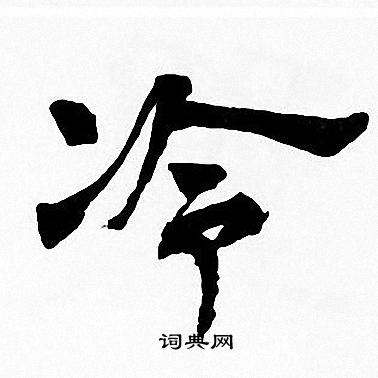 冷
词典网